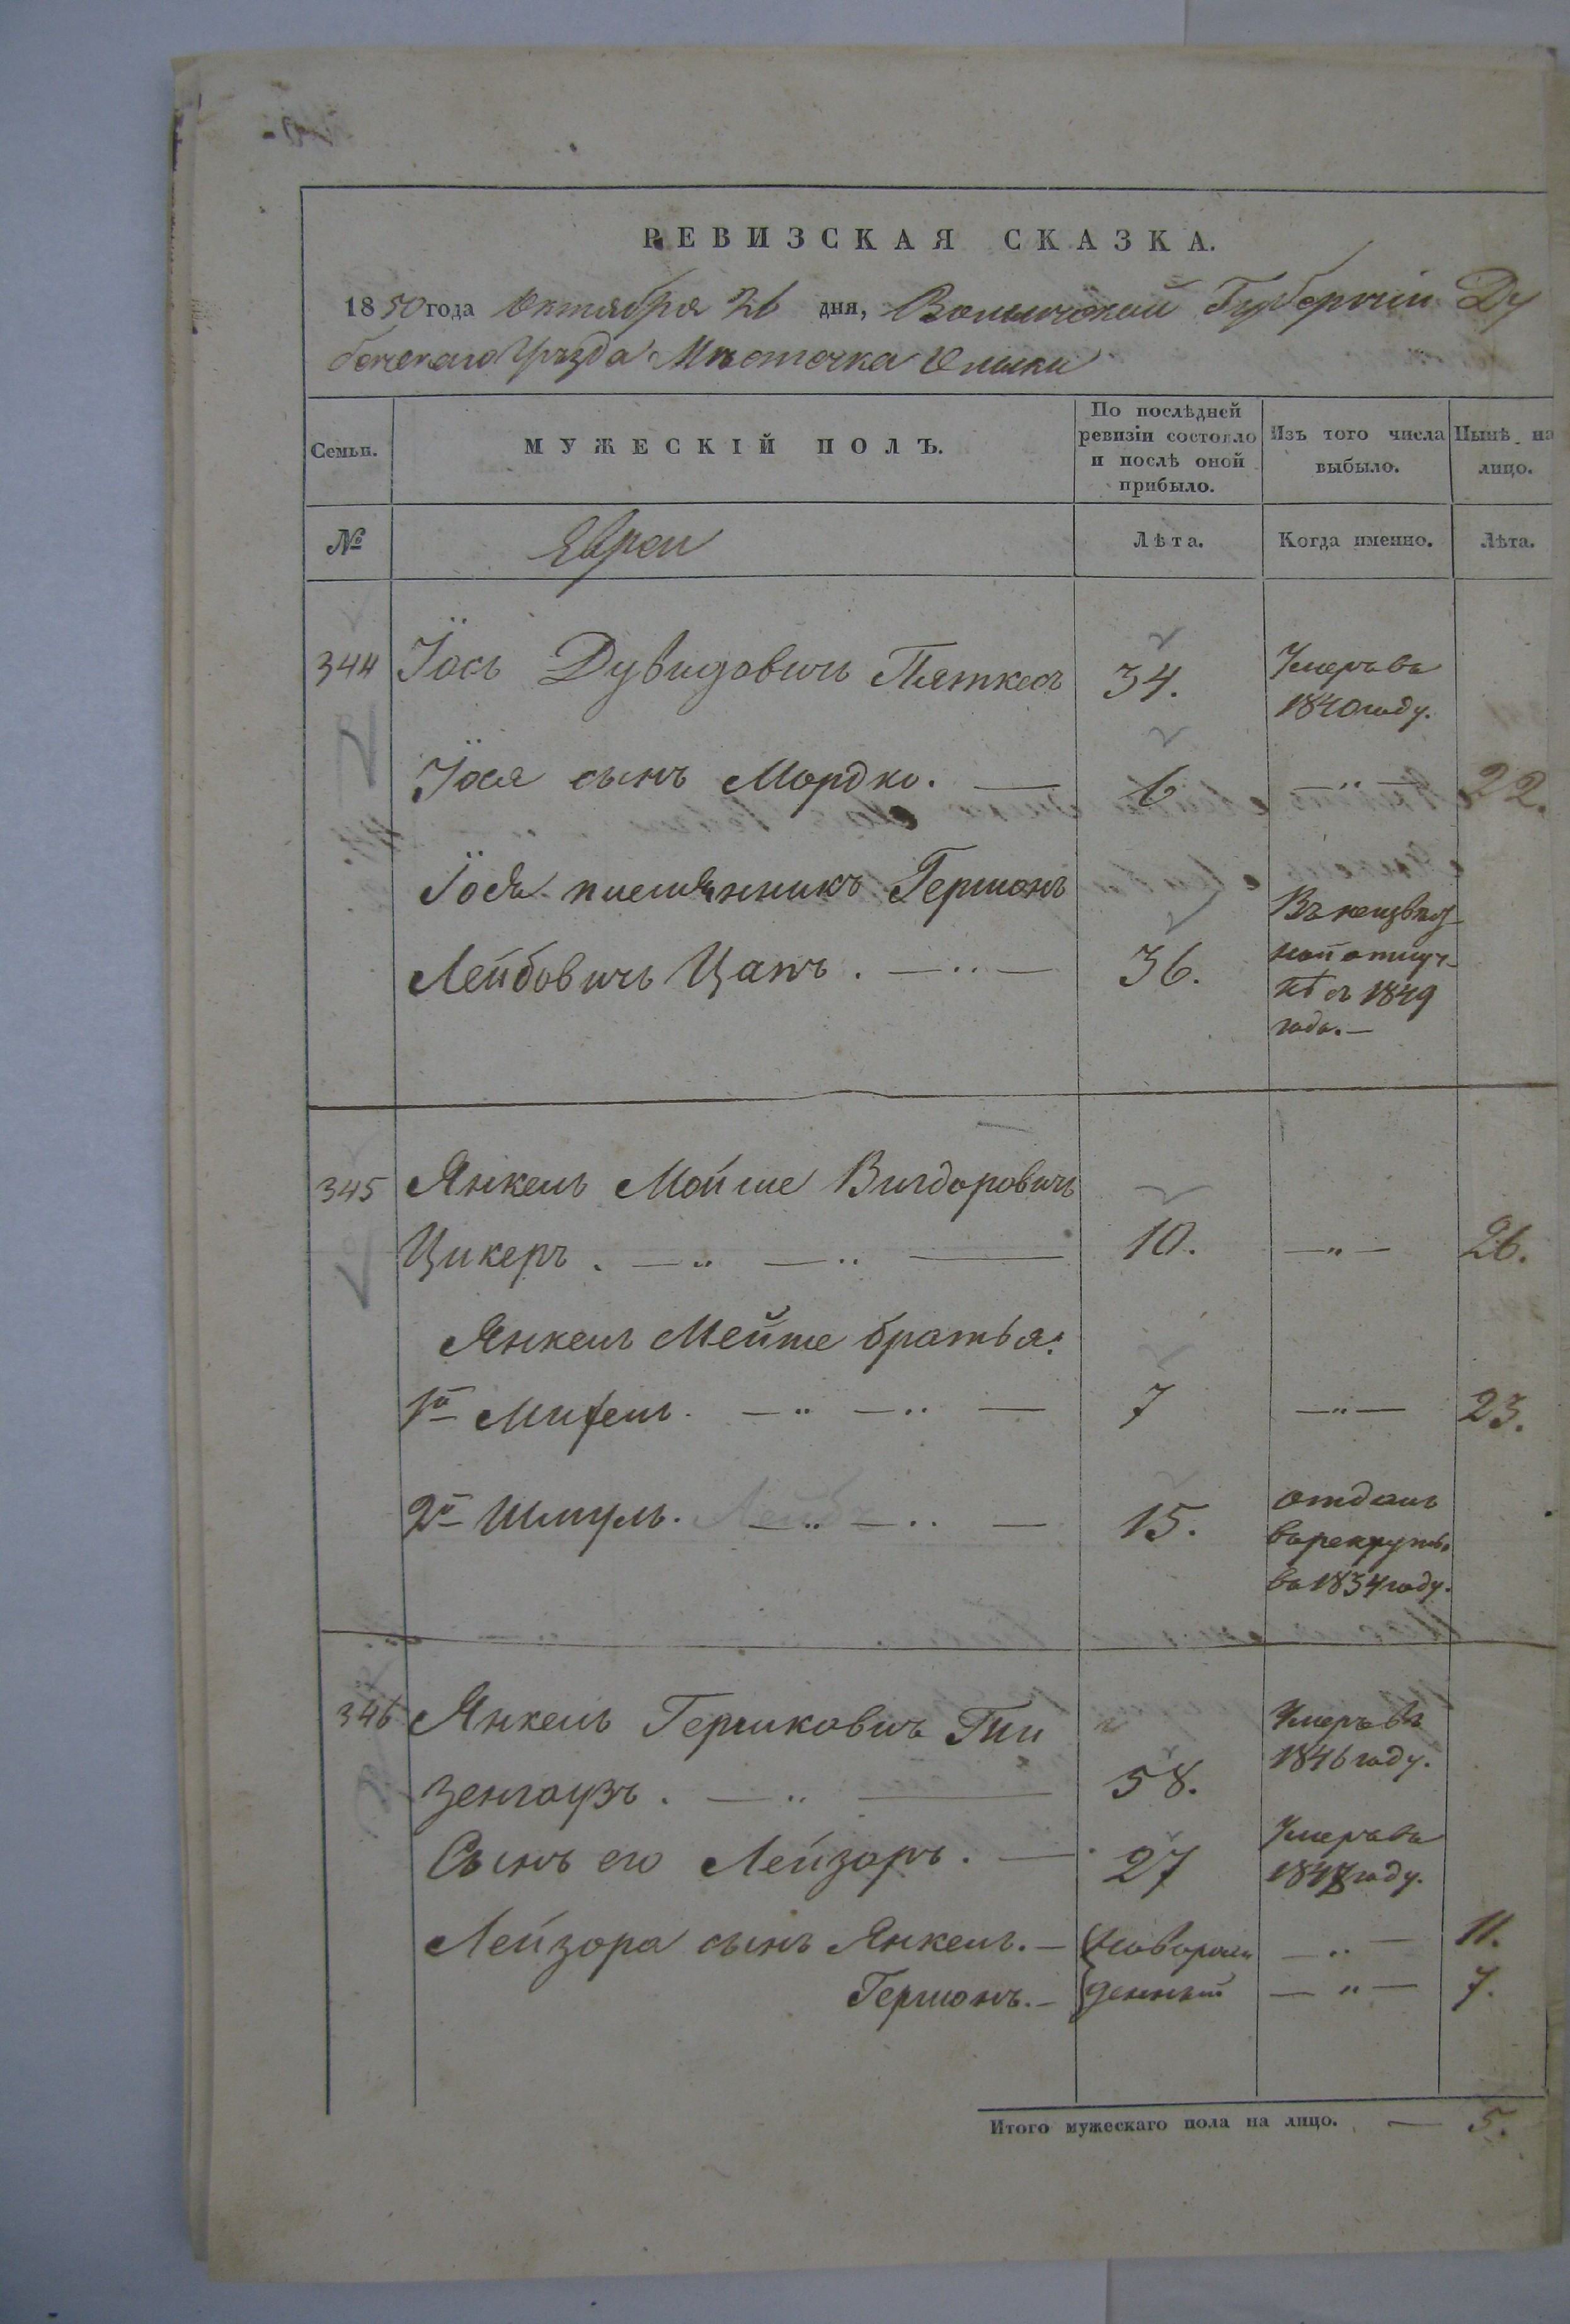 РЕВИЗСКАЯ СКАЗКА.
1850 года Октября 26 дня, Волынской Губерніи Ду
бенскаго Уѣзда Мѣстечка Олыки
Семьи.
МУЖЕСКІЙ ПОЛЪ.
По послѣдней
ревизіи состояло
и послѣ оной
прибыло.
Изъ того числа
выбыло.
Нынѣ на
лицо.
№
Евреи
Лѣта.
Когда именно.
Лѣта.
344 Іось Дувидовичь Пяткесъ 34. Умеръ въ
1840 году.
Іося сынъ Мордко. — 6 — " — 22.
Іося племянникъ Гершонъ
Лейбовичь Цапъ. — " — 36. Въ неизвѣст
ной отлуч-
кѣ съ 1849
года. —
345 Янкель Мойше Вигдоровичь
Цикеръ. — " — " — 10. — " — 26.
Янкель Мейше братья:
1й — " — " — 7 — " — 23.
2й Шмуль. — " — " — 15. отданъ
въ рекруты
въ 1834 году.
346 Янкель Гершковичь Гин
зенгаузъ. — " — 58. Умеръ въ
1846 году.
Сынъ его Лейзоръ. — 27 Умеръ въ
году.
Лейзора сынъ Янкель. — новорож — " — 11.
Гершонъ. — денный — " — 7.
Итого мужескаго пола на лицо. — 5.